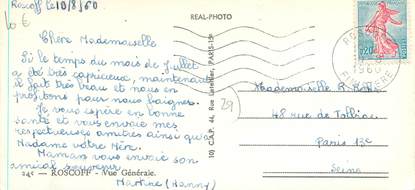 Roscoff le 10/8/60
10 €
REAL-PHOTO
Chère Mademoiselle
Si le temps du mois de Juillet
a été très capricieux, maintenant
il fait très beau et nous en
profitons pour nous baigner.
Je vous espère en bonne
santé et vous envoie mes
respectueuses amitiés ainsi qu'à
Madame votre Mère.
Maman vous envoie son
amical souvenir
Martine
24c — ROSCOFF - Vue Générale.
10) C.A.P. 44, Rue Letellier, PARIS-15e
29
1960
0,20
Mademoiselle R.
48 rue de Tolbiac
Paris 13e
Seine